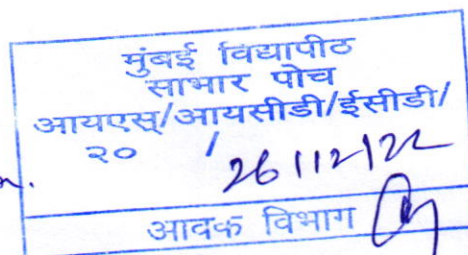 मुंबई विद्यापीठ
साभार पोच
आयएस्/आयसीडी/ईसीडी/
२० / 26/12/22
आवक विभाग